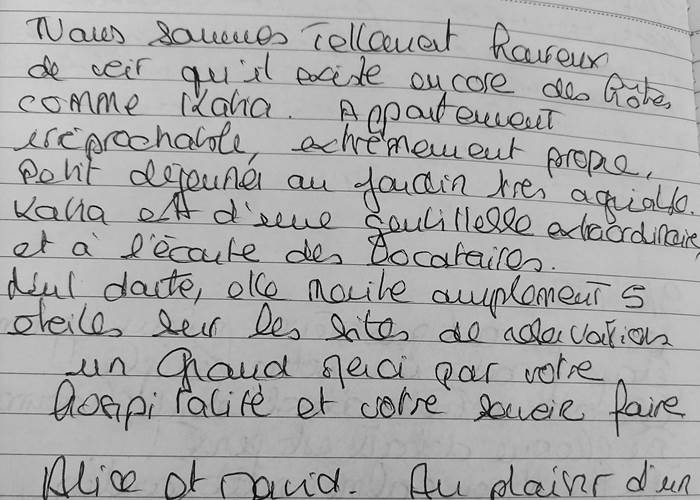 Nous sommes tellement heureux
de voir qu'il existe encore des hôtes
comme Kalia. Appartement
iréprochable, extrêmement propre,
petit déjeuner au jardin très agréable
Kalia est d'une gentillesse extraordinaire,
et à l'écoute des locataires.
Nul doute, elle mérite amplement 5
étoiles sur les sites de réservation
un Grand Merci par votre
hospitalité et votre savoir faire
Alice et David. Au plaisir d'un